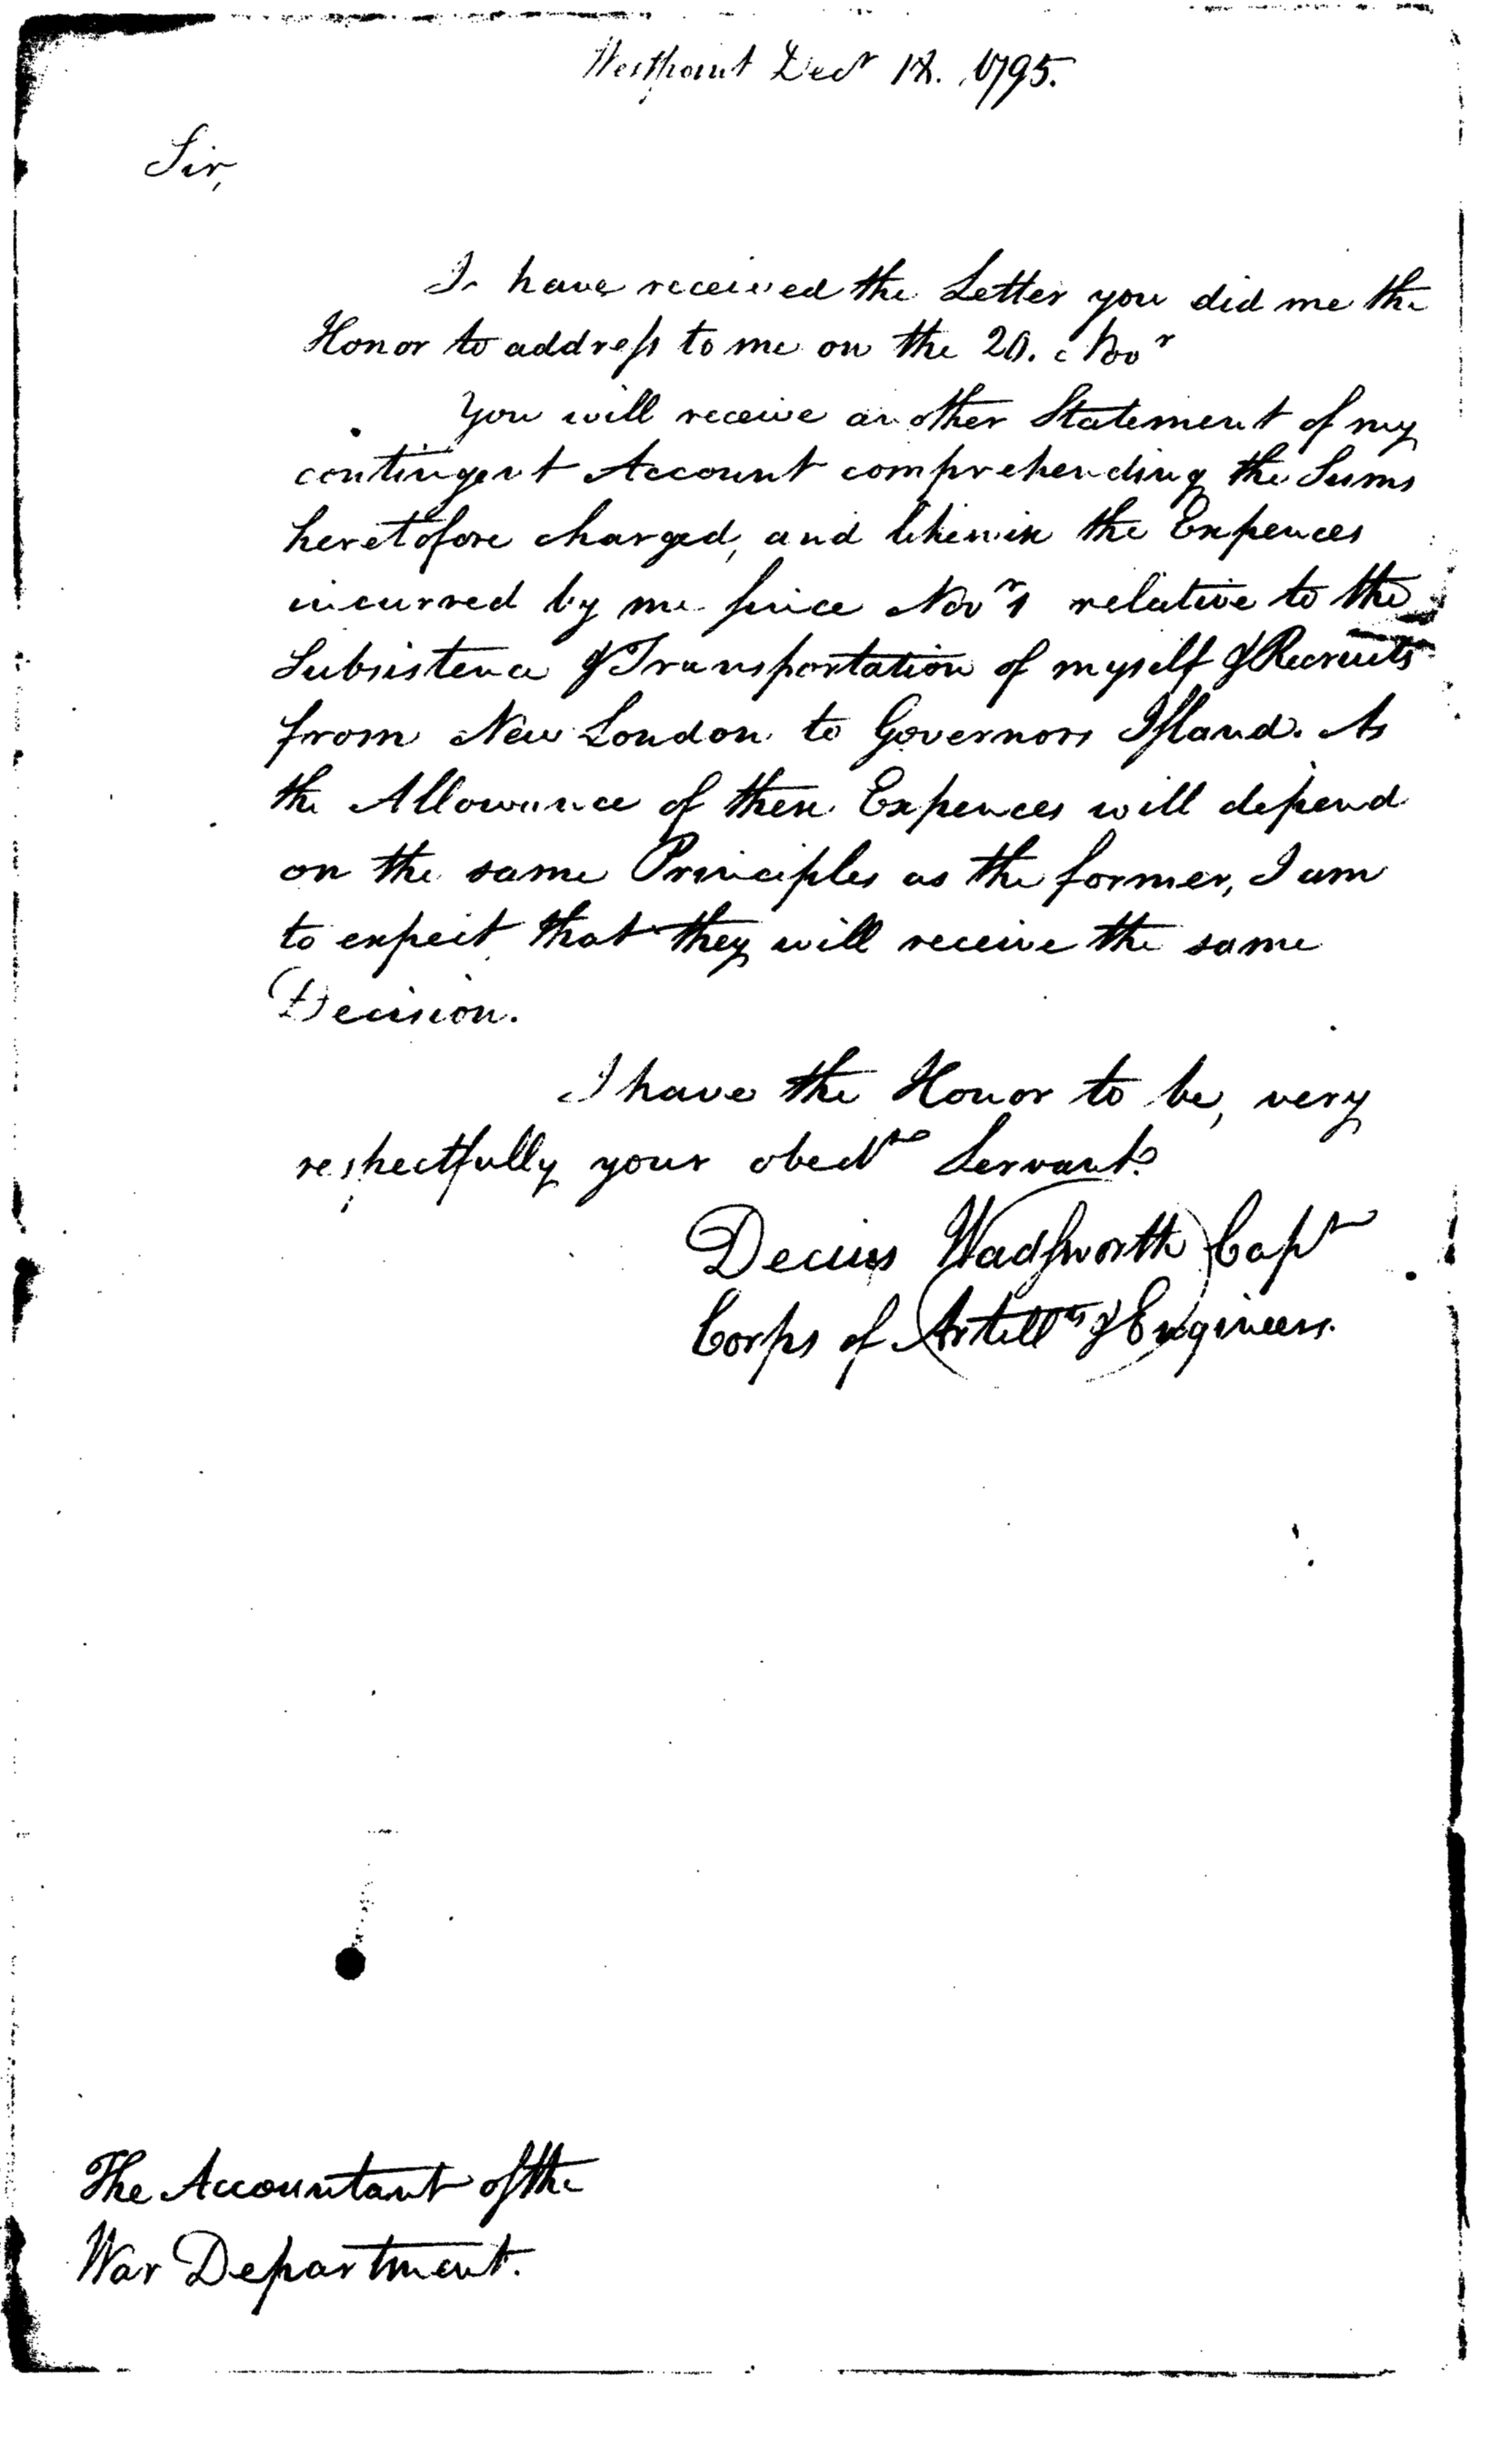 Westpoint Decr 18. 1795.
Sir,
I have received the Letter you did me the
Honor to address to me on the 20. Novr
You will receive another Statement of my
contingent Account comprehending the Sums
heretofore charged, and likewise the Expences
incurred by me since Novr 1 relative to the
Subsistence & Transportation of myself & Recruits
from New London to Governors Island. As
the Allowance of these Expences will depend
on the same Principles as the former, I am
to expect that they will receive the same
Decision.
I have the Honor to be, very
respectfully your obedt Servant.
Decius Wadsworth Capt
Corps of Artillts & Engineers.
The Accountant of the
War Department.